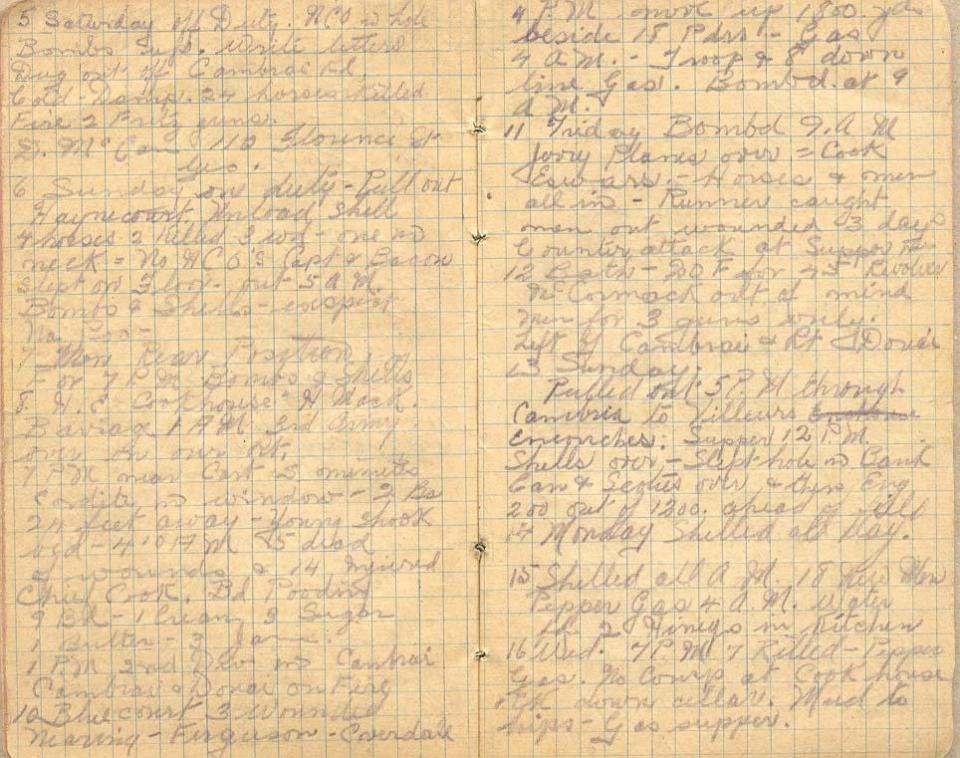 5 Saturday off Duty. NCO in hole
Bombs Supp. Write letters
Dug out off Cambrai Rd.
Cold - Damp. 24 horses killed
Fire 2 Fritz guns.
D. McCam 110 Florence St
6 Sunday on duty - Pull out
Haynecourt. Unload Shell
4 horses 2 killed 3 wd - one in
neck = No NCO's Capt & Bacon
Slept on Floor - out 5 A.M.
Bombs & Shells
7 Mon Rear Position
7 P.M. Bombs & Shells
8. H.E. Cookhouse
1 A.M. 3rd Army
over on our rt.
7 PM near Cart 5 minutes
Cordite in window - 3
24 feet away - Young Shook
wgd - 4 10 17 M 5 dead
of wounds & 14 Injured
Chief Cook. Bd Pooding
9 Bd - 1 Cream 2 Sugar
1 Butter - 3 Jam.
1 PM 2nd Div in Cambrai
Cambrai & Douai on Fire
10 Bluecourt 3 Wounded
Nearing - Ferguson - Coverdale
4 P.M. move up 1800. yds
beside 18 Pdrs - Gas
4 A.M. - Troop & 8" down
line Gas. Bombd. at 9
A M.
11 Friday Bombd 9. A M
Jerry Planes over = Cook
Eswars. - Horses & men
all in - Runner caught
men out wounded 3 days
Counter attack at Supper
12 Bath - 20 F for 45 Revolver
McCormack out of mind
Men for 3 guns only.
Left of Cambrai & Rt of Douai
13 Sunday.
Pulled out 5 P.M through
Cambria to Villeurs
encouches: Supper 12 P.M.
Shells over, - Slept hole in bank
Can & Scotties over & then Eng
200 out of 1200. ahead of
14 Monday Shelled all day.
15 Shelled all A M. 18 New Men
Pepper Gas 4 A.M. Water
2 Himeys in Kitchen
16 Wed. 7 P.M 7 Killed - Pepper
Gas. No Comp at Cook house
down cellar. Mud to
hips - Gas supper.